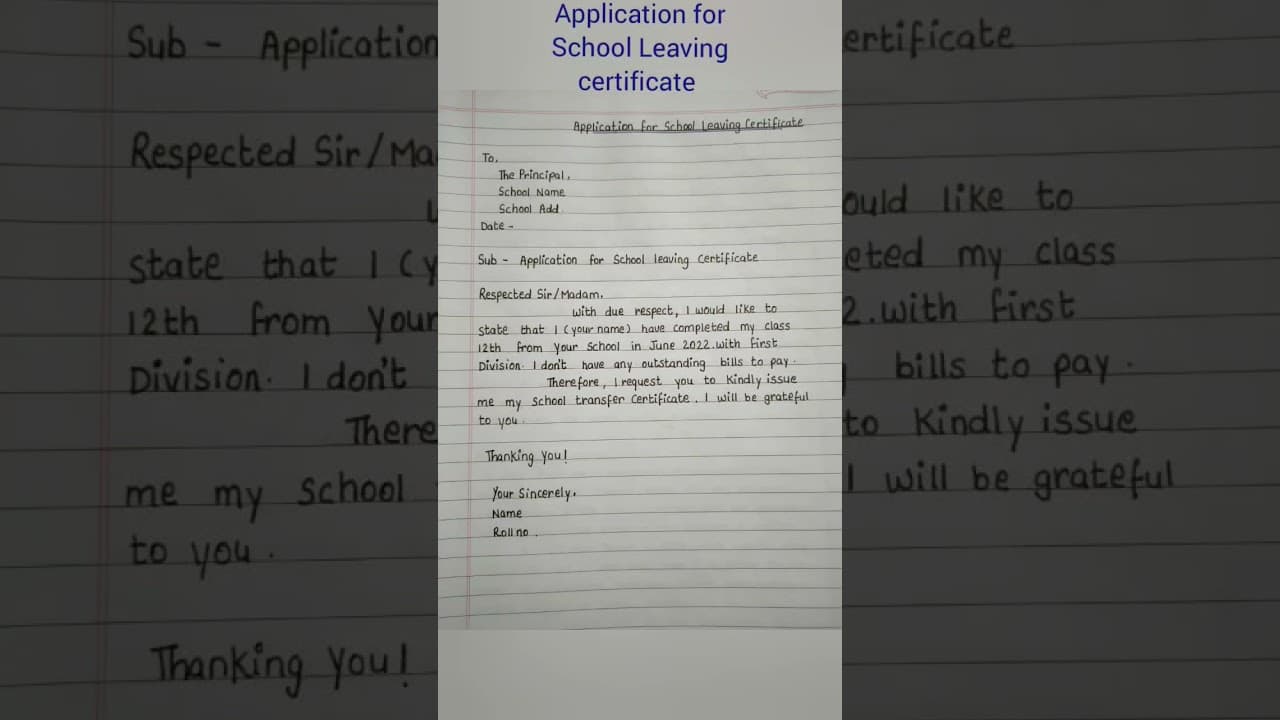 Application for
School Leaving
certificate
Application for School Leaving Certificate
To,
The Principal,
School Name
School Add.
Date -
Sub - Application for School leaving Certificate
Respected Sir/Madam,
with due respect, I would like to
state that I (your name) have completed my class
12th from your School in June 2022.with first
Division. I don't have any outstanding bills to pay.
Therefore, I request you to Kindly issue
me my School transfer Certificate. I will be grateful
to you.
Thanking You!
Your Sincerely,
Name
Roll no.
Sub - Application
ertificate
Respected Sir/Ma
ould like to
state that I (y
eted my class
12th from your
2.with first
Division. I don't
bills to pay.
There
to Kindly issue
me my School
I will be grateful
to you.
Thanking You!